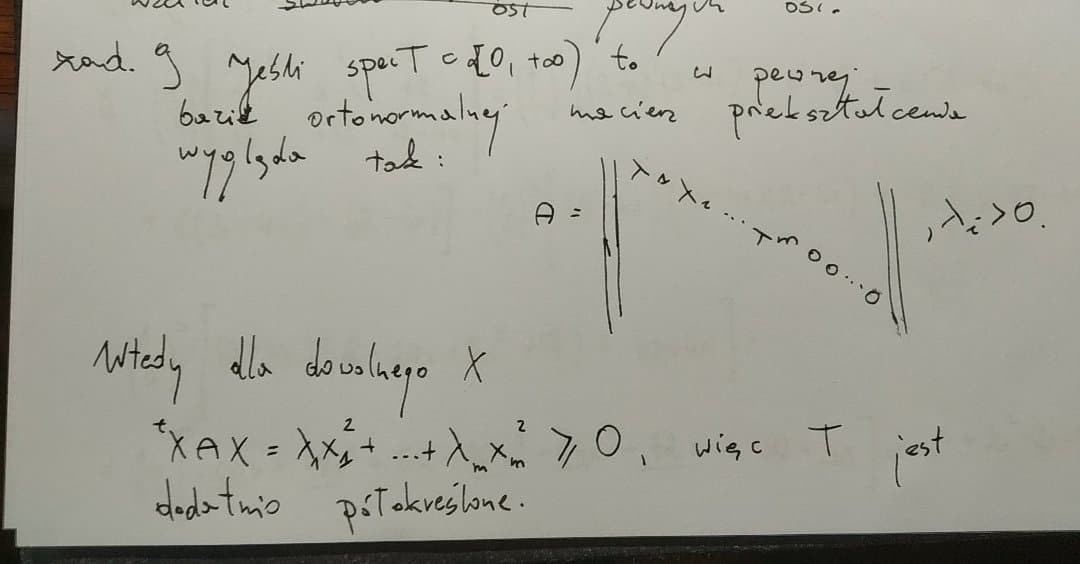 ości pewnych osi.
zad. 9 Jeśli spec T ⊂ [0, +∞) to w pewnej
bazie ortonormalnej macierz przekształcenia
wygląda tak:
A = || λ₁ λ₂ ... λm 0 0 ... 0 || , λi > 0.
Wtedy dla dowolnego X
ᵗX A X = λ₁x₁² + ... + λₘxₘ² ⩾ 0, więc T jest
dodatnio półokreślone.